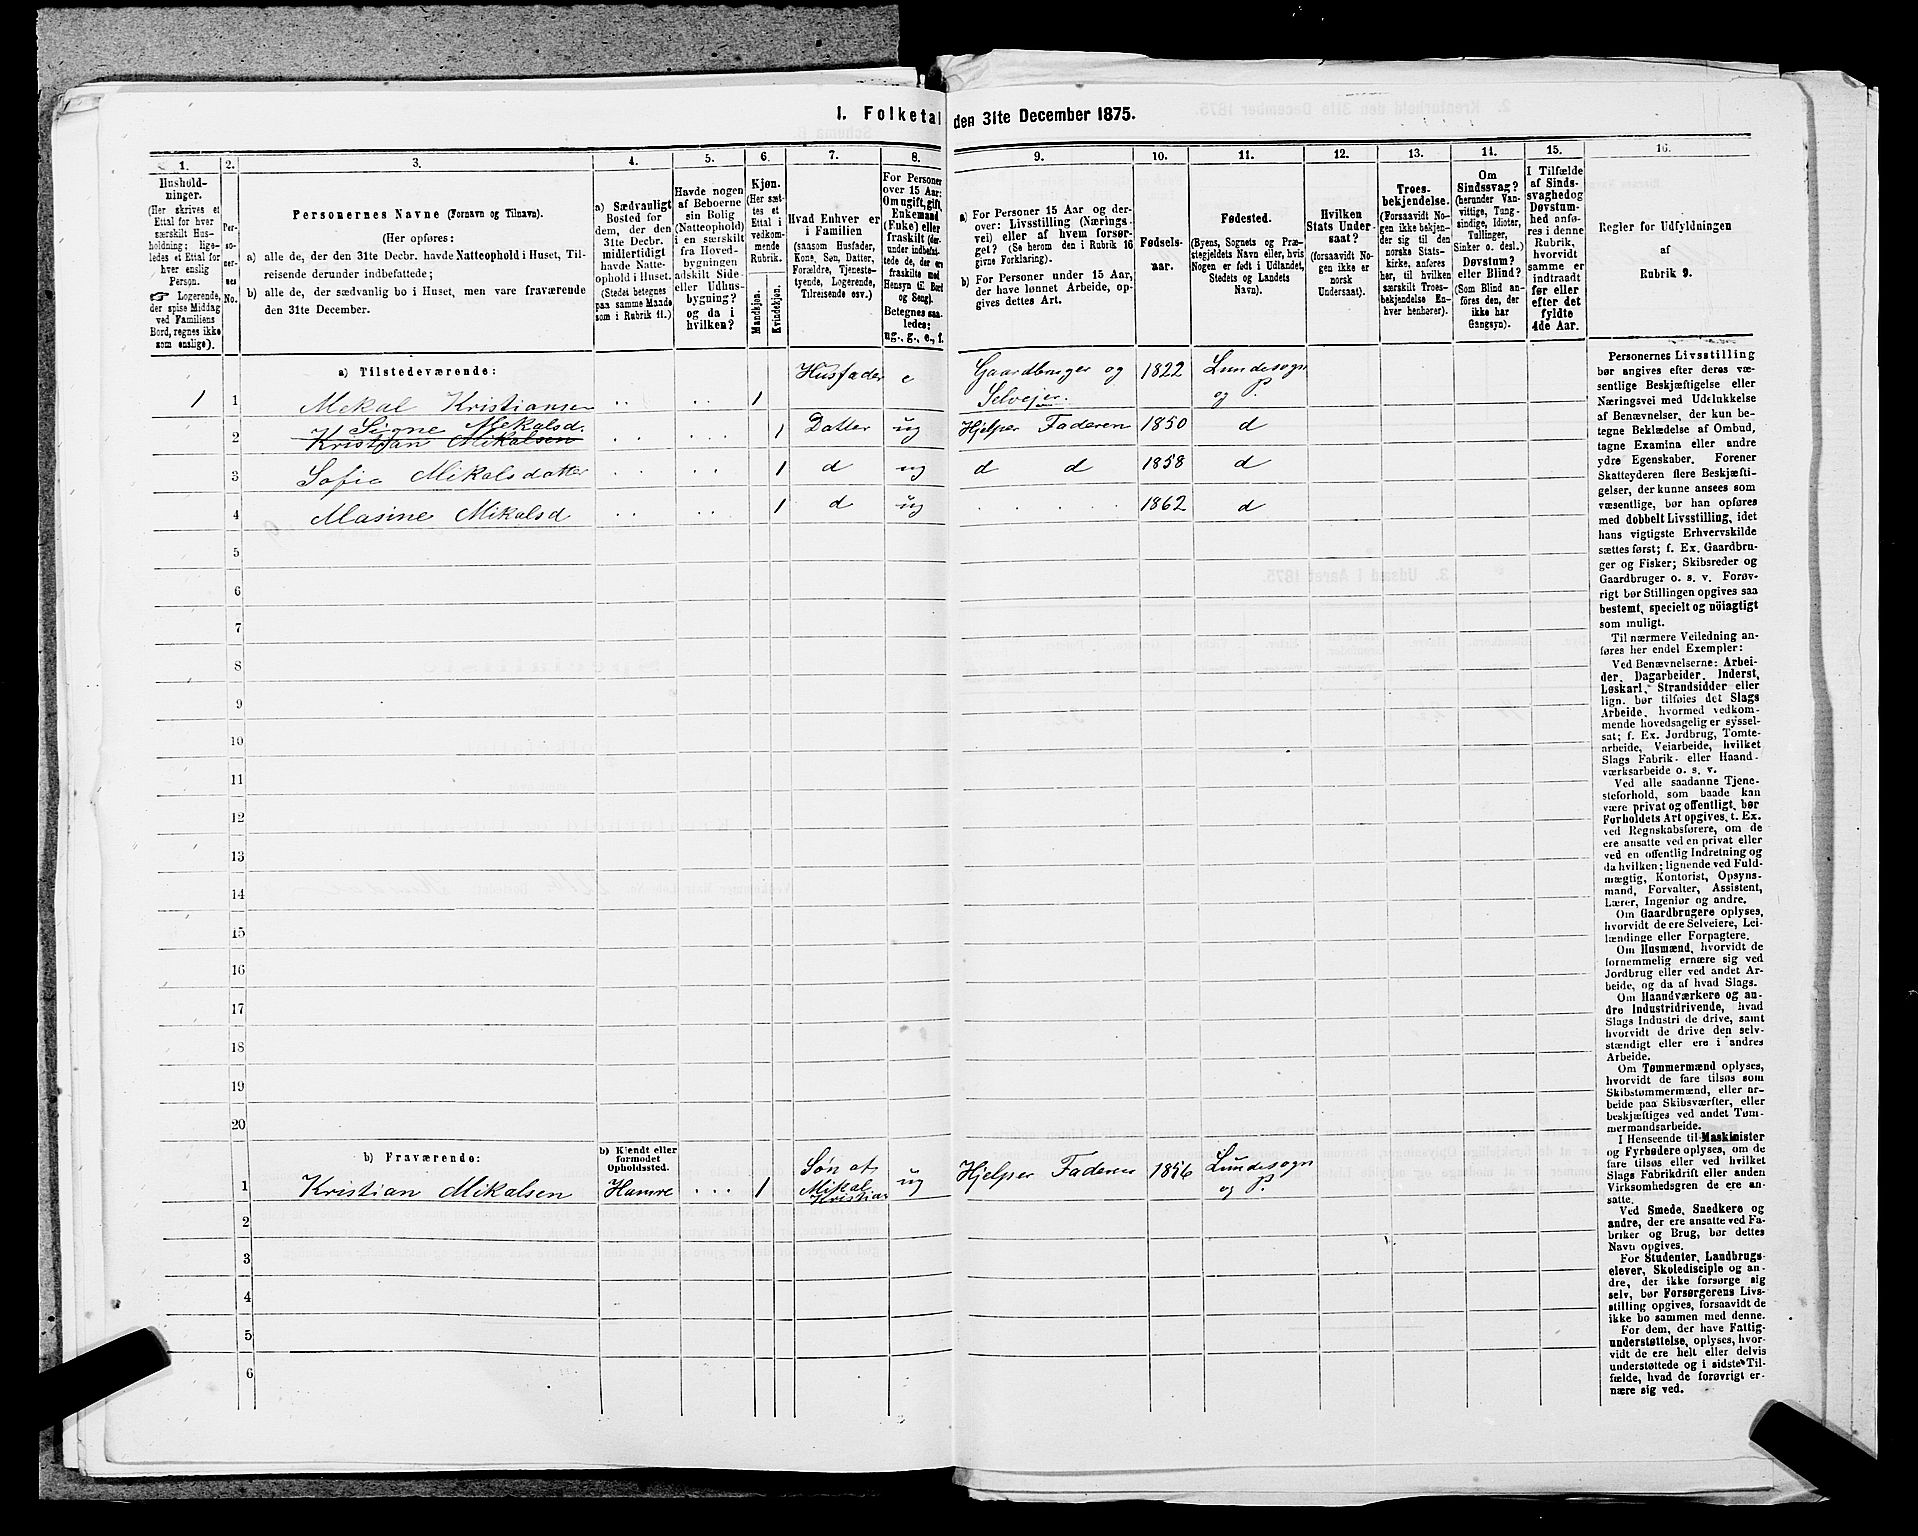 I. Folketal den 31te December 1875.
1. 2. 3. 4. 5. 6. 7. 8. 9. 10. 11. 12. 13. 14. 15. 16.
Hushold-
ninger.
(Her skrives et
Ettal for hver
særskilt Hus-
holdning; lige-
ledes et Ettal for
hver enslig
Person.
☞ Logerende,
der spise Middag
ved Familiens
Bord, regnes ikke
som enslige).
Per-
so-
ner-
nes
No.
Personernes Navne (Fornavn og Tilnavn).
(Her opføres:
a) alle de, der den 31te Decbr. havde Natteophold i Huset, Til-
reisende derunder indbefattede;
b) alle de, der sædvanlig bo i Huset, men vare fraværende
den 31te December.
a) Sædvanligt
Bosted for
dem, der den
31te Decbr.
midlertidigt
havde Natte-
ophold i Huset.
(Stedet betegnes
paa samme Maade
som i Rubrik 11.)
Havde nogen
af Beboerne
sin Bolig
(Natteophold)
i en særskilt
fra Hoved-
bygningen
adskilt Side-
eller Udhus-
bygning?
og da i
hvilken?
Kjøn.
(Her sæt-
tes et
Ettal i
vedkom-
mende
Rubrik.
Mandkjøn.
Kvindekjøn.
Hvad Enhver er
i Familien
(saasom Husfader,
Kone, Søn, Datter,
Forældre, Tjeneste-
tyende, Logerende,
Tilreisende osv.)
For Personer
over 15 Aar:
Om ugift, gift,
Enkemand
(Enke) eller
fraskilt (der-
under indbefat-
tede de, der ere
fraskilte med
Hensyn til Bord
og Seng).
Betegnes saa-
ledes:
ug., g., e., f.
a) For Personer 15 Aar og der-
over: Livsstilling (Nærings-
vei) eller af hvem forsør-
get? (Se herom den i Rubrik 16
givne Forklaring).
b) For Personer under 15 Aar,
der have lønnet Arbeide, op-
gives dettes Art.
Fødsels-
aar.
Fødested.
(Byens, Sognets og Præ-
stegjeldets Navn eller, hvis
Nogen er født i Udlandet,
Stedets og Landets
Navn).
Hvilken
Stats Under-
saat?
(forsaavidt No-
gen ikke er
norsk
Undersaat).
Troes-
bekjendelse.
(Forsaavidt No-
gen ikke bekjen-
der sig til den
norske Stats-
kirke, anføres
her, til hvilken
særskilt Troes-
bekjendelse En-
hver henhører).
Om
Sindssvag?
(herunder Van-
vittige, Tung-
sindige, Idioter,
Tullinger,
Sinker o. desl.)
Døvstum?
eller Blind?
(Som Blind an-
føres den, der
ikke har
Gangsyn).
I Tilfælde
af Sinds-
svaghed og
Døvstum-
hed anfø-
res i denne
Rubrik,
hvorvidt
samme er
indtraadt
før eller
efter det
fyldte
4de Aar.
Regler for Udfyldningen
af
Rubrik 9.
a) Tilstedeværende:
1 1 Mekal Kristiansen .. .. 1 Husfader e Gaardbruger og Selvejer. 1822 Lundesogn og P.
2 Signe Mekalsd. Kristjan Mikalsen .. .. 1 Datter ug Hjelper Faderen 1850 d
3 Sofie Mikalsdatter .. .. 1 d ug d d 1858 d
4 Masine Mikalsd .. .. 1 d ug .... 1862 d
5
6
7
8
9
10
11
12
13
14
15
16
17
18
19
20
b) Fraværende:
b) Kjendt eller
formodet
Opholdssted.
1 Kristian Mikalsen Hamre ... 1 Søn af Mikal Kristian ug Hjelper Faderen 1856 Lundesogn og P.
2
3
4
5
6
Personernes Livsstilling
bør angives efter deres væ-
sentlige Beskjæftigelse eller
Næringsvei med Udelukkelse
af Benævnelser, der kun be-
tegne Beklædelse af Ombud,
tagne Examina eller andre
ydre Egenskaber. Forener
Skatteyderen flere Beskjæfti-
gelser, der kunne ansees som
væsentlige, bør han opføres
med dobbelt Livsstilling, idet
hans vigtigste Erhvervskilde
sættes først; f. Ex. Gaardbru-
ger og Fisker; Skibsreder og
Gaardbruger o. s. v. Forøv-
rigt bør Stillingen opgives saa
bestemt, specielt og nöiagtigt
som muligt.
Til nærmere Veiledning an-
føres her endel Exempler:
Ved Benævnelserne: Arbei-
der, Dagarbeider, Inderst,
Løskarl, Strandsidder eller
lign. bør tilføies det Slags
Arbeide, hvormed vedkom-
mende hovedsagelig er syssel-
sat; f. Ex. Jordbrug, Tomte-
arbeide, Veiarbeide, hvilket
Slags Fabrik- eller Haand-
værksarbeide o. s. v.
Ved alle saadanne Tjene-
steforhold, som baade kan
være privat og offentligt, bør
Forholdets Art opgives, t. Ex.
ved Regnskabsførere, om de
ere ansatte ved en privat eller
ved en offentlig Indretning og
da hvilken; lignende ved Fuld-
mægtig, Kontorist, Opsyns-
mand, Forvalter, Assistent,
Lærer, Ingeniør og andre.
Om Gaardbrugere oplyses,
hvorvidt de ere Selveiere, Lei-
lændinge eller Forpagtere.
Om Husmænd, hvorvidt de
fornemmelig ernære sig ved
Jordbrug eller ved andet Ar-
beide, og da af hvad Slags.
Om Haandværkere og an-
dre Industridrivende, hvad
Slags Industri de drive, samt
hvorvidt de drive den selv-
stændigt eller ere i andres
Arbeide.
Om Tømmermænd oplyses,
hvorvidt de fare tilsøs som
Skibstømmermænd, eller ar-
beide paa Skibsværfter, eller
beskjæftiges ved andet Tøm-
mermandsarbeide.
I Henseende til Maskinister
og Fyrbødere oplyses, om de
fare tilsøs eller ved hvilket
Slags Fabrikdrift eller anden
Virksomhed sgen de ere an-
satte.
Ved Smede, Snedkere og
andre, der ere ansatte ved Fa-
briker og Brug, bør dettes
Navn opgives.
For Studenter, Landbrugs-
elever, Skoledisciple og an-
dre, der ikke forsørge sig
selv, bør Forsørgerens Livs-
stilling opgives, forsaavidt de
ikke bo sammen med denne.
For dem, der have Fattig-
understøttelse, oplyses, hvor-
vidt de ere helt eller delvis
understøttede og i sidste Til-
fælde, hvad de forøvrigt er-
nære sig ved.